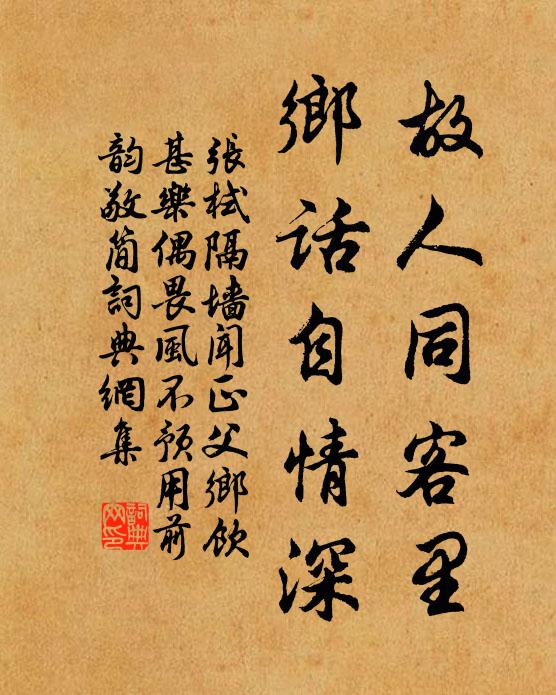 故人同客里
鄉话自情深
張栻隔墙闻正父鄉飲
甚樂偶畏風不預用前
韵敬简詞典網集
詞典
网印